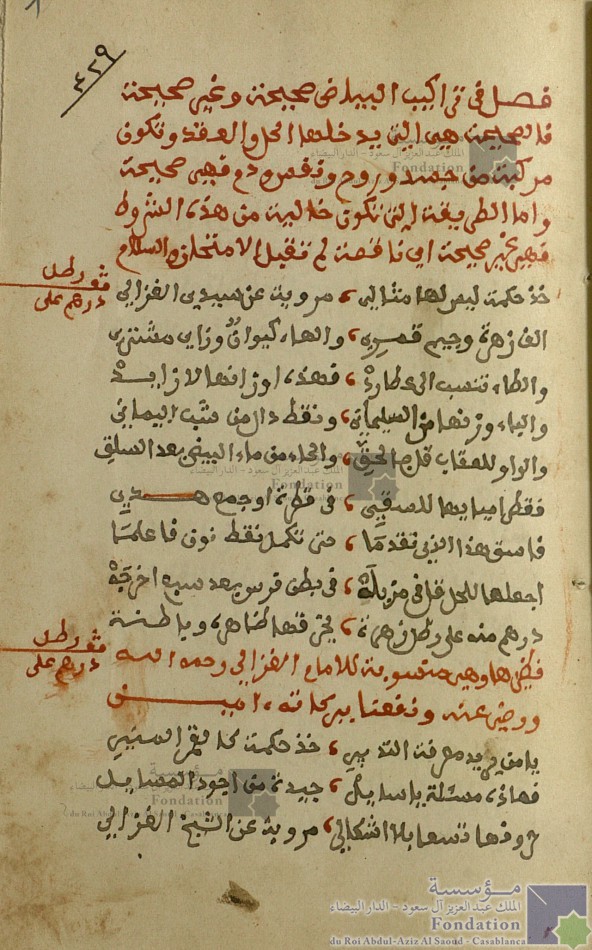 ٤٢٩
فصل في تراكيب البياض صحيحة وغير صحيحة
فالصحيحة هي التي يدخلها الحل والعقد وتكون
مركبة من جسد وروح ونفس ودم فهي صحيحة
واما الطريقة التي تكون خالية من هذه الشروط
فهي غير صحيحة اي ناقصة لم تقبل الامتحان والسلام
خذ حكمة ليس لها مثالي، مروية عن سيدي الغزالي
الف زهرة وجيم قمري، والهاء كيوان وزاي مشتري
والطاء تنسب الى عطارد، فهذه اوزانها لا زايد
والياء وزنها من السليماني، ونقط دال من شب اليماني
والواو للعقاب قل الحق، والحاء من ماء البيض بعد السلق
فقطر امياهها للسقي، في قطرة اوجمع هدي
فاسق هذا الذي تقدما، حتى تكمل نقط نون فاعلما
اجعلها للحل قل في مزبلة، في بطن فرس بعد سبع اخرجه
درهم منه على رطل زهرة، يخرقها ظاهرة وباطنة
درهم على رطل
وهي منسوبة للامام الغزالي رحمه الله
ورضي عنه ونفعنا ببركاته، امين
درهم على رطل
يا من يريد معرفة التدبير، خذ حكمة كالقمر المنير
فهاذه مسئلة يا سايل، جيدة من اجود المسايل
حروفها تسعا بلا اشكالي، مروية عن الشيخ الغزالي
مؤسسة
الملك عبد العزيز آل سعود - الدار البيضاء
Fondation
du Roi Abdul-Aziz Al Saoud - Casablanca